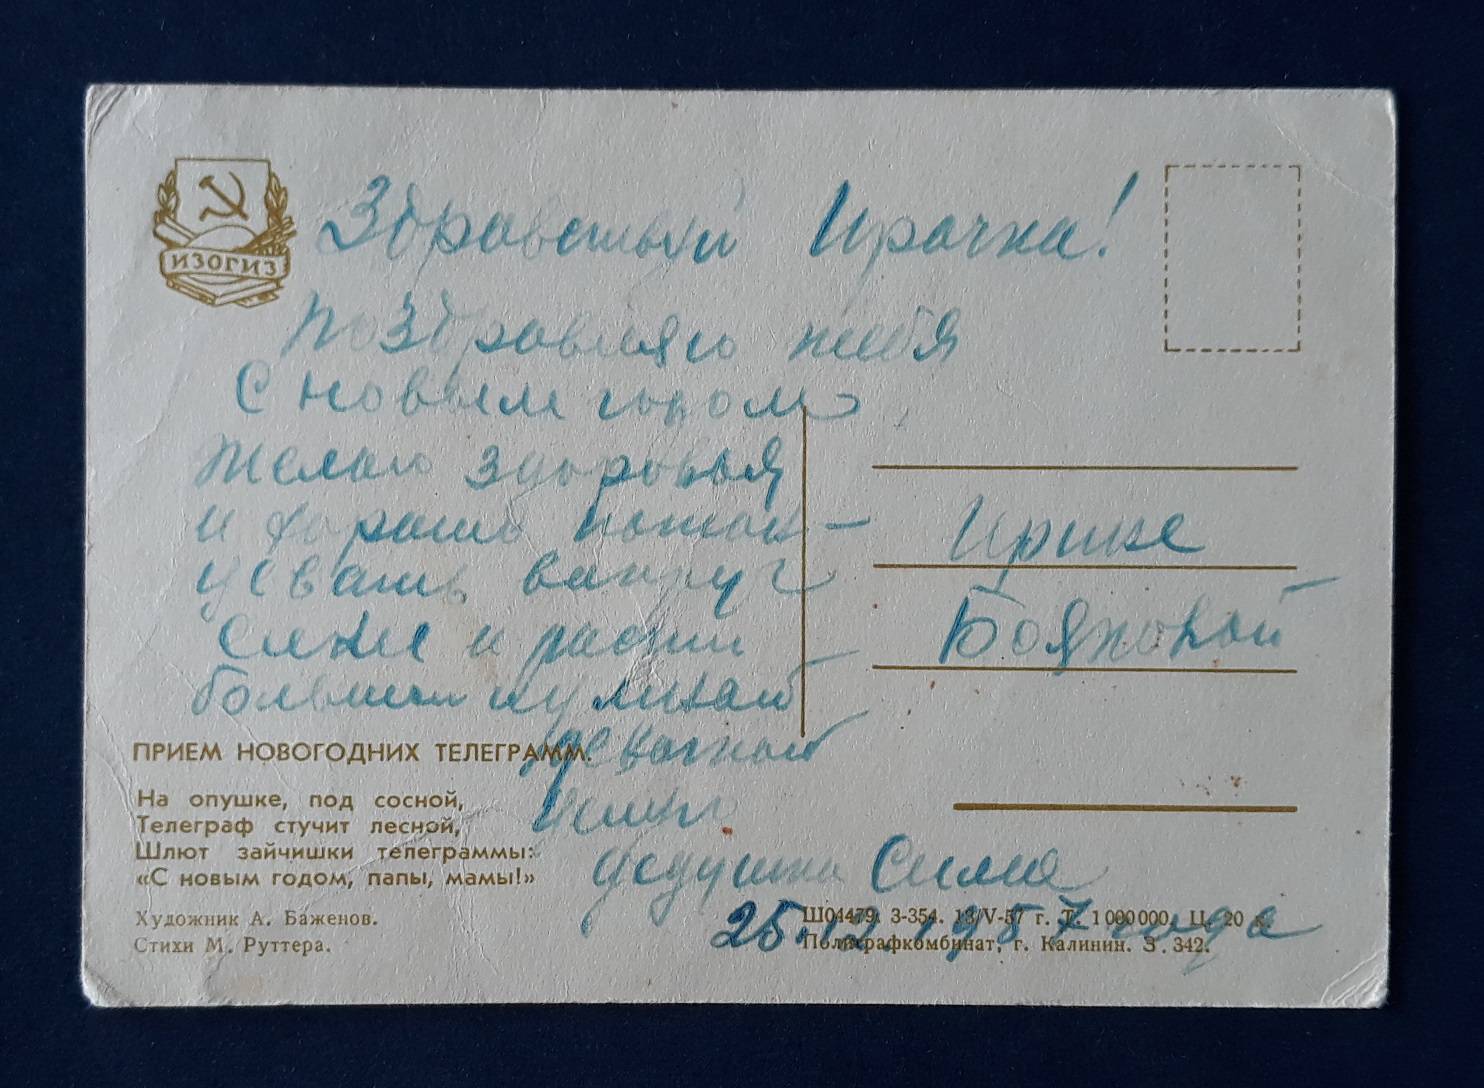 ИЗОГИЗ
Здравствуй Ирачка!
Поздравляю тебя
С новым годом
Желаю здоровья
и харашо
вакруг
и расти
большой
девочкой
дедушка Сима
25.12.1957 года
Ирине
Бояновой
ПРИЕМ НОВОГОДНИХ ТЕЛЕГРАММ.
На опушке, под сосной,
Телеграф стучит лесной,
Шлют зайчишки телеграммы:
«С новым годом, папы, мамы!»
Художник А. Баженов.
Стихи М. Руттера.
Ш04479. З-354. 13/V-57 г. Т. 1 000 000. Ц. 20 к.
Полиграфкомбинат, г. Калинин. З. 342.